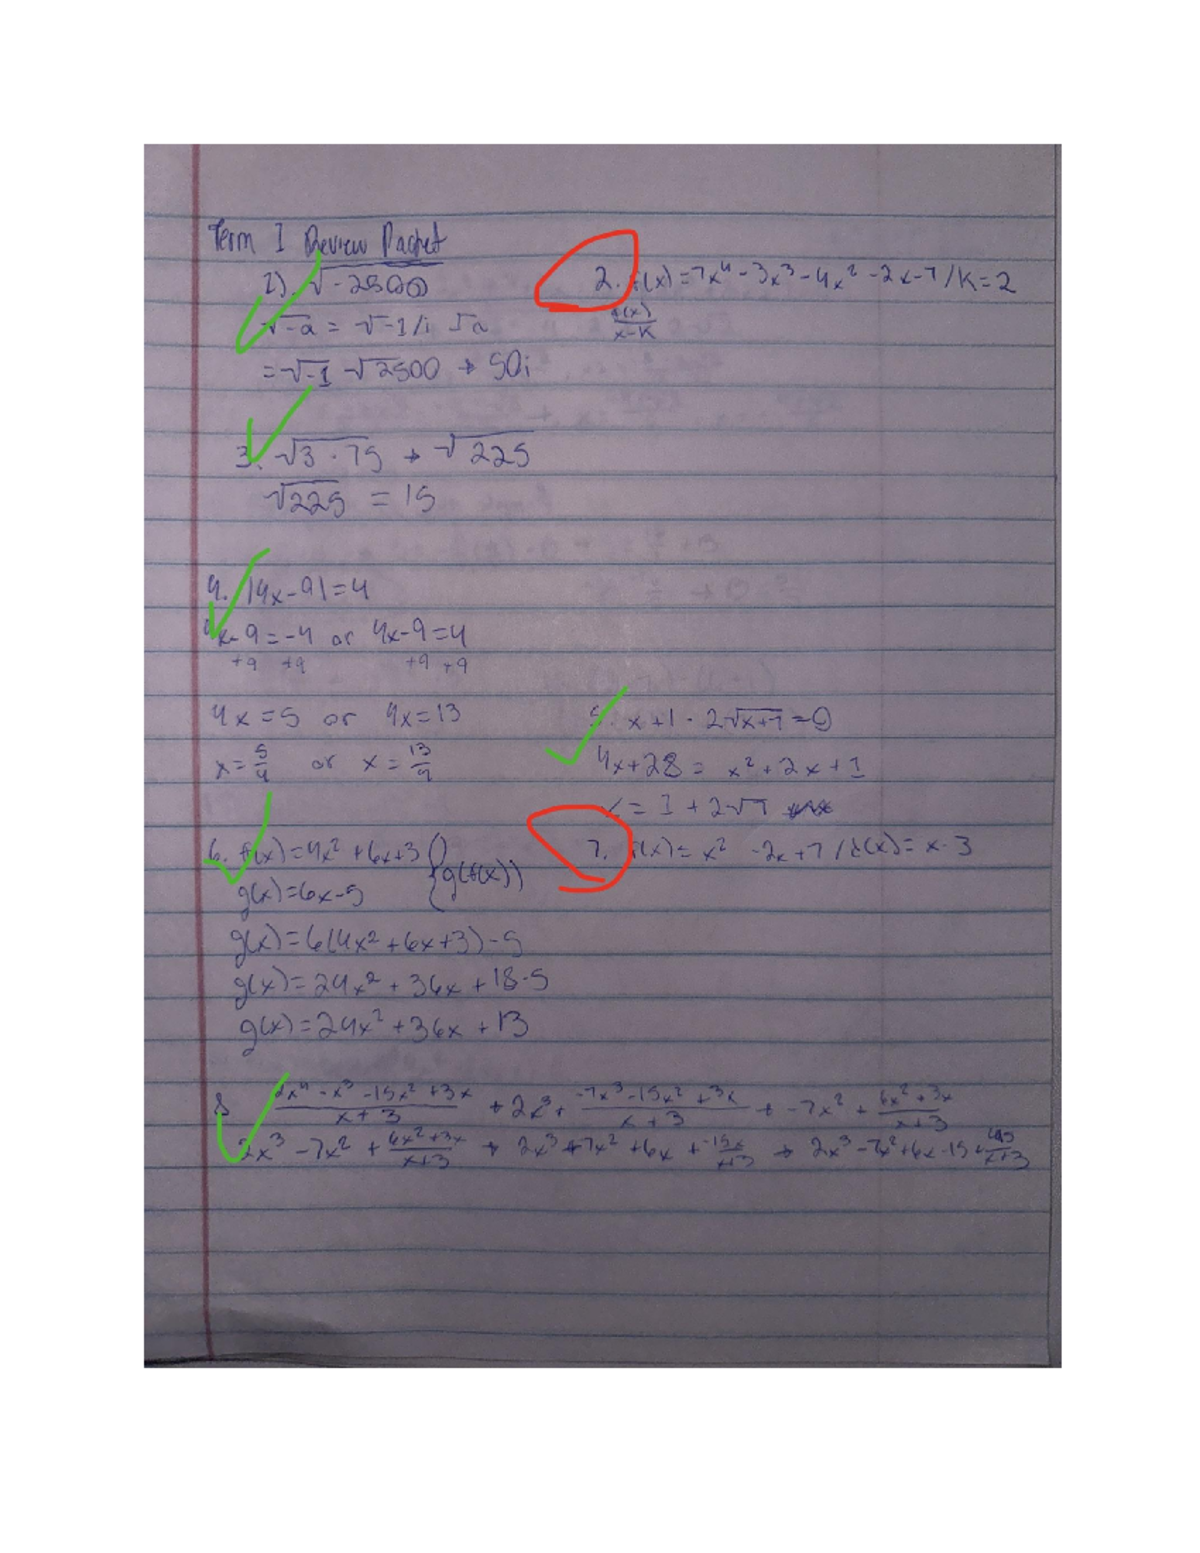 Term I Review Packet
1). √-2500
√-a = √-1/i √a
= √-1 √2500 → 50i
2. f(x) = 7x⁴ - 3x³ - 4x² - 2x - 7 / K = 2
f(x)/x-K
3. √3 · 75 → √225
√225 = 15
4. |4x - 9| = 4
4x - 9 = -4 or 4x - 9 = 4
+9 +9 +9 +9
4x = 5 or 4x = 13
x = 5/4 or x = 13/4
5. x + 1 - 2√x+7 = 0
4x + 28 = x² + 2x + 1
x = 1 + 2√7
6. f(x) = 4x² + 6x + 3 { g(f(x))
g(x) = 6x - 5
g(x) = 6(4x² + 6x + 3) - 5
g(x) = 24x² + 36x + 18 - 5
g(x) = 24x² + 36x + 13
7. f(x) = x² - 2x + 7 / d(x) = x - 3
8. 2x⁴ - x³ - 15x² + 3x / x + 3 → 2x³ + -7x³ - 15x² + 3x / x + 3 → -7x² + 6x² + 3x / x + 3
2x³ - 7x² + 6x² + 3x / x+3 → 2x³ + 7x² + 6x + -15x / x+3 → 2x³ - 7x² + 6x - 15 + 45 / x+3